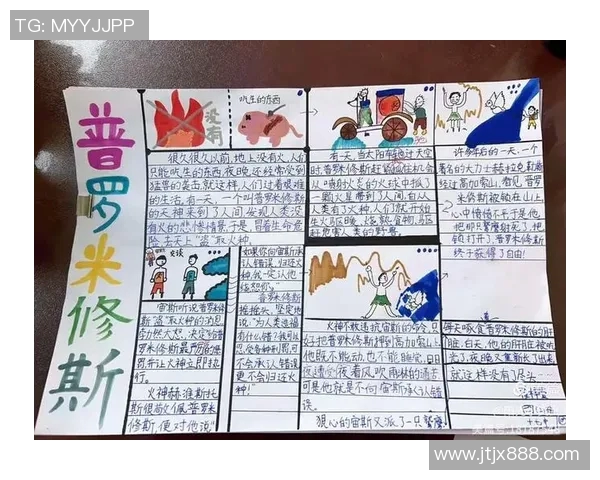 TG: MYYJJPP
普罗米修斯
没有
吃生的东西
很久很久以前,地上没有火,人们
只能吃生的东西,夜晚还经常受到
猛兽的袭击,就这样,人们过着艰难
的生活。有一天,一个叫普罗米修斯
的天神来到了人间,发现人类没
有火的悲惨情景,于是,冒着生命危
险,去天上"盗"取火种。
有一天,当太阳车驰过天空
时,普罗米修斯
从喷射火焰的火球中抓了
一颗火星带到了人间,自从
人类有了火种,人们就开始
生火取暖、烧熟食物、驱
赶危害人类的野兽。
许多年后的一天,一个
著名的大力士赫拉克
经过高加索山,看见普罗
米修斯被锁在山上,
心中愤愤不
锁打开了,普罗米修斯
终于获得了自由!
交谈
宙斯听说普罗米修
斯"盗"取火种的消息,
勃然大怒,决定给普
罗米修斯最严厉的惩
罚,并让火神立即执
行。
火神赫淮斯托
斯很敬佩普罗米
修斯,便对他说:"
如果你向宙斯
承认错误,归还火
种,我一定让他
饶恕你。"
普罗米修斯
摇摇头,坚定地
说:"为人类造福
有什么错?我可以
忍受各种刑罚,但
不会承认错误,
更不会归还火
种!"
火神不敢违抗宙斯的命令,只
好把普罗米修斯押到高加索山上。
他既不能动,也不能睡觉,日日
夜夜遭受着风吹雨淋的痛苦,
可是他就是不向宙斯承认错
误。
狠心的宙斯又派了一只鹫鹰
每天啄食普罗米修斯的肝
脏。白天,他的肝脏被吃
光了,夜晚又重新长了出来,
就这样没有尽头……
www.jtjx888.com